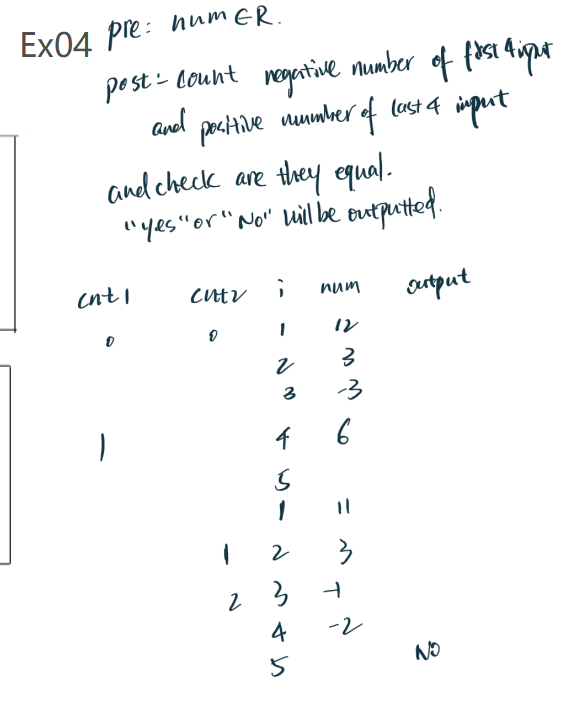 Ex04 pre: num ∈ R.
post:- Count negative number of first 4 input
and positive number of last 4 input
and check are they equal.
"yes" or "No" will be outputted.
cnt1 cnt2 i num output
0 0 1 12
2 3
3 -3
1 4 6
5
1 11
1 2 3
2 3 -1
4 -2
5 NO